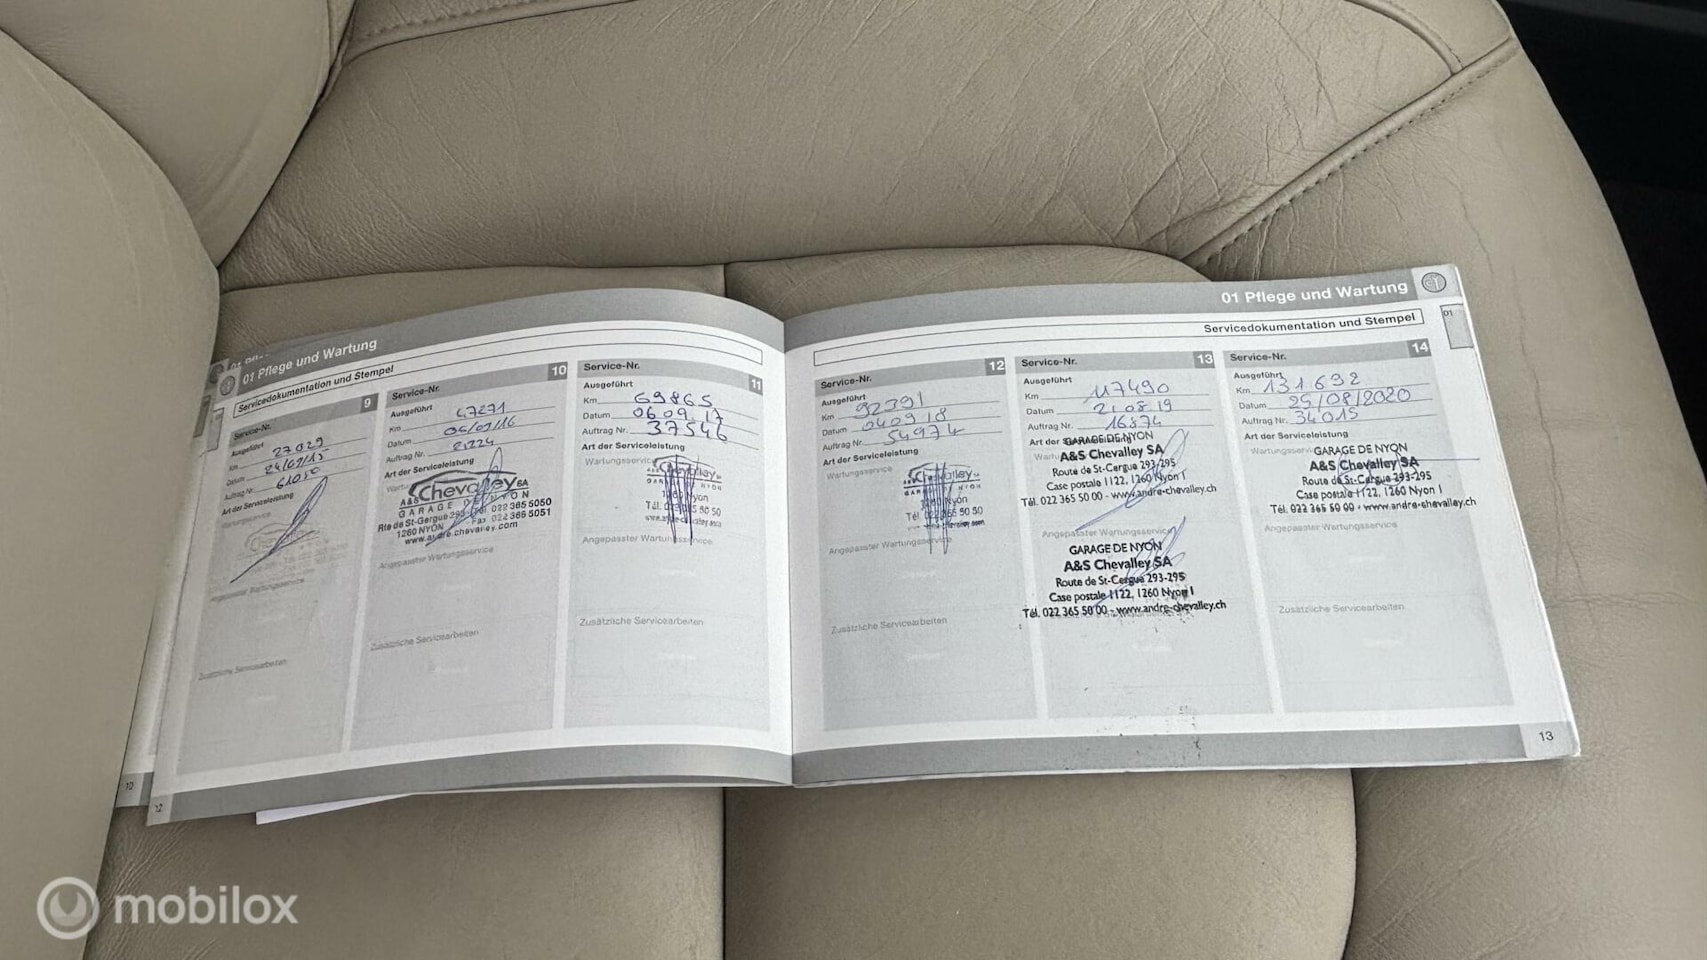 01 Pflege und Wartung
Servicedokumentation und Stempel
Service-Nr. 9
Ausgeführt
Km 27029
Datum 24/09/15
Auftrag Nr. 61050
Art der Serviceleistung
Wartungsservice
Angepasster Wartungsservice
Zusätzliche Servicearbeiten
Service-Nr. 10
Ausgeführt
Km 47271
Datum 06/09/16
Auftrag Nr. 21224
Art der Serviceleistung
Chevalley SA
A&S
GARAGE DE NYON
Rte de St-Cergue 293 Tél 022 365 5050
1260 NYON Fax 022 365 5051
www.andre.chevalley.com
Angepasster Wartungsservice
Zusätzliche Servicearbeiten
Service-Nr. 11
Ausgeführt
Km 69865
Datum 06 09.17
Auftrag Nr. 37546
Art der Serviceleistung
Wartungsservice
Chevalley
1260 Nyon
Angepasster Wartungsservice
Zusätzliche Servicearbeiten
12
10
01 Pflege und Wartung
01
Servicedokumentation und Stempel
Service-Nr. 12
Ausgeführt
Km 92391
Datum 04 09 18
Auftrag Nr. 54974
Art der Serviceleistung
Wartungsservice
Chevalley
Angepasster Wartungsservice
Zusätzliche Servicearbeiten
Service-Nr. 13
Ausgeführt
Km 117490
Datum 21.08.19
Auftrag Nr. 16874
Art der
GARAGE DE NYON
A&S Chevalley SA
Route de St-Cergue 293-295
Case postale 1122, 1260 Nyon 1
Tél. 022 365 50 00 - www.andre-chevalley.ch
Angepasster Wartungsservice
GARAGE DE NYON
A&S Chevalley SA
Route de St-Cergue 293-295
Case postale 1122, 1260 Nyon 1
Tél. 022 365 50 00 - www.andre-chevalley.ch
Service-Nr. 14
Ausgeführt
Km 131692
Datum 25/08/2020
Auftrag Nr. 34015
Art der Serviceleistung
GARAGE DE NYON
A&S Chevalley SA
Route de St-Cergue 293-295
Case postale 1122, 1260 Nyon 1
Tél. 022 365 50 00 - www.andre-chevalley.ch
Angepasster Wartungsservice
Zusätzliche Servicearbeiten
13
mobilox